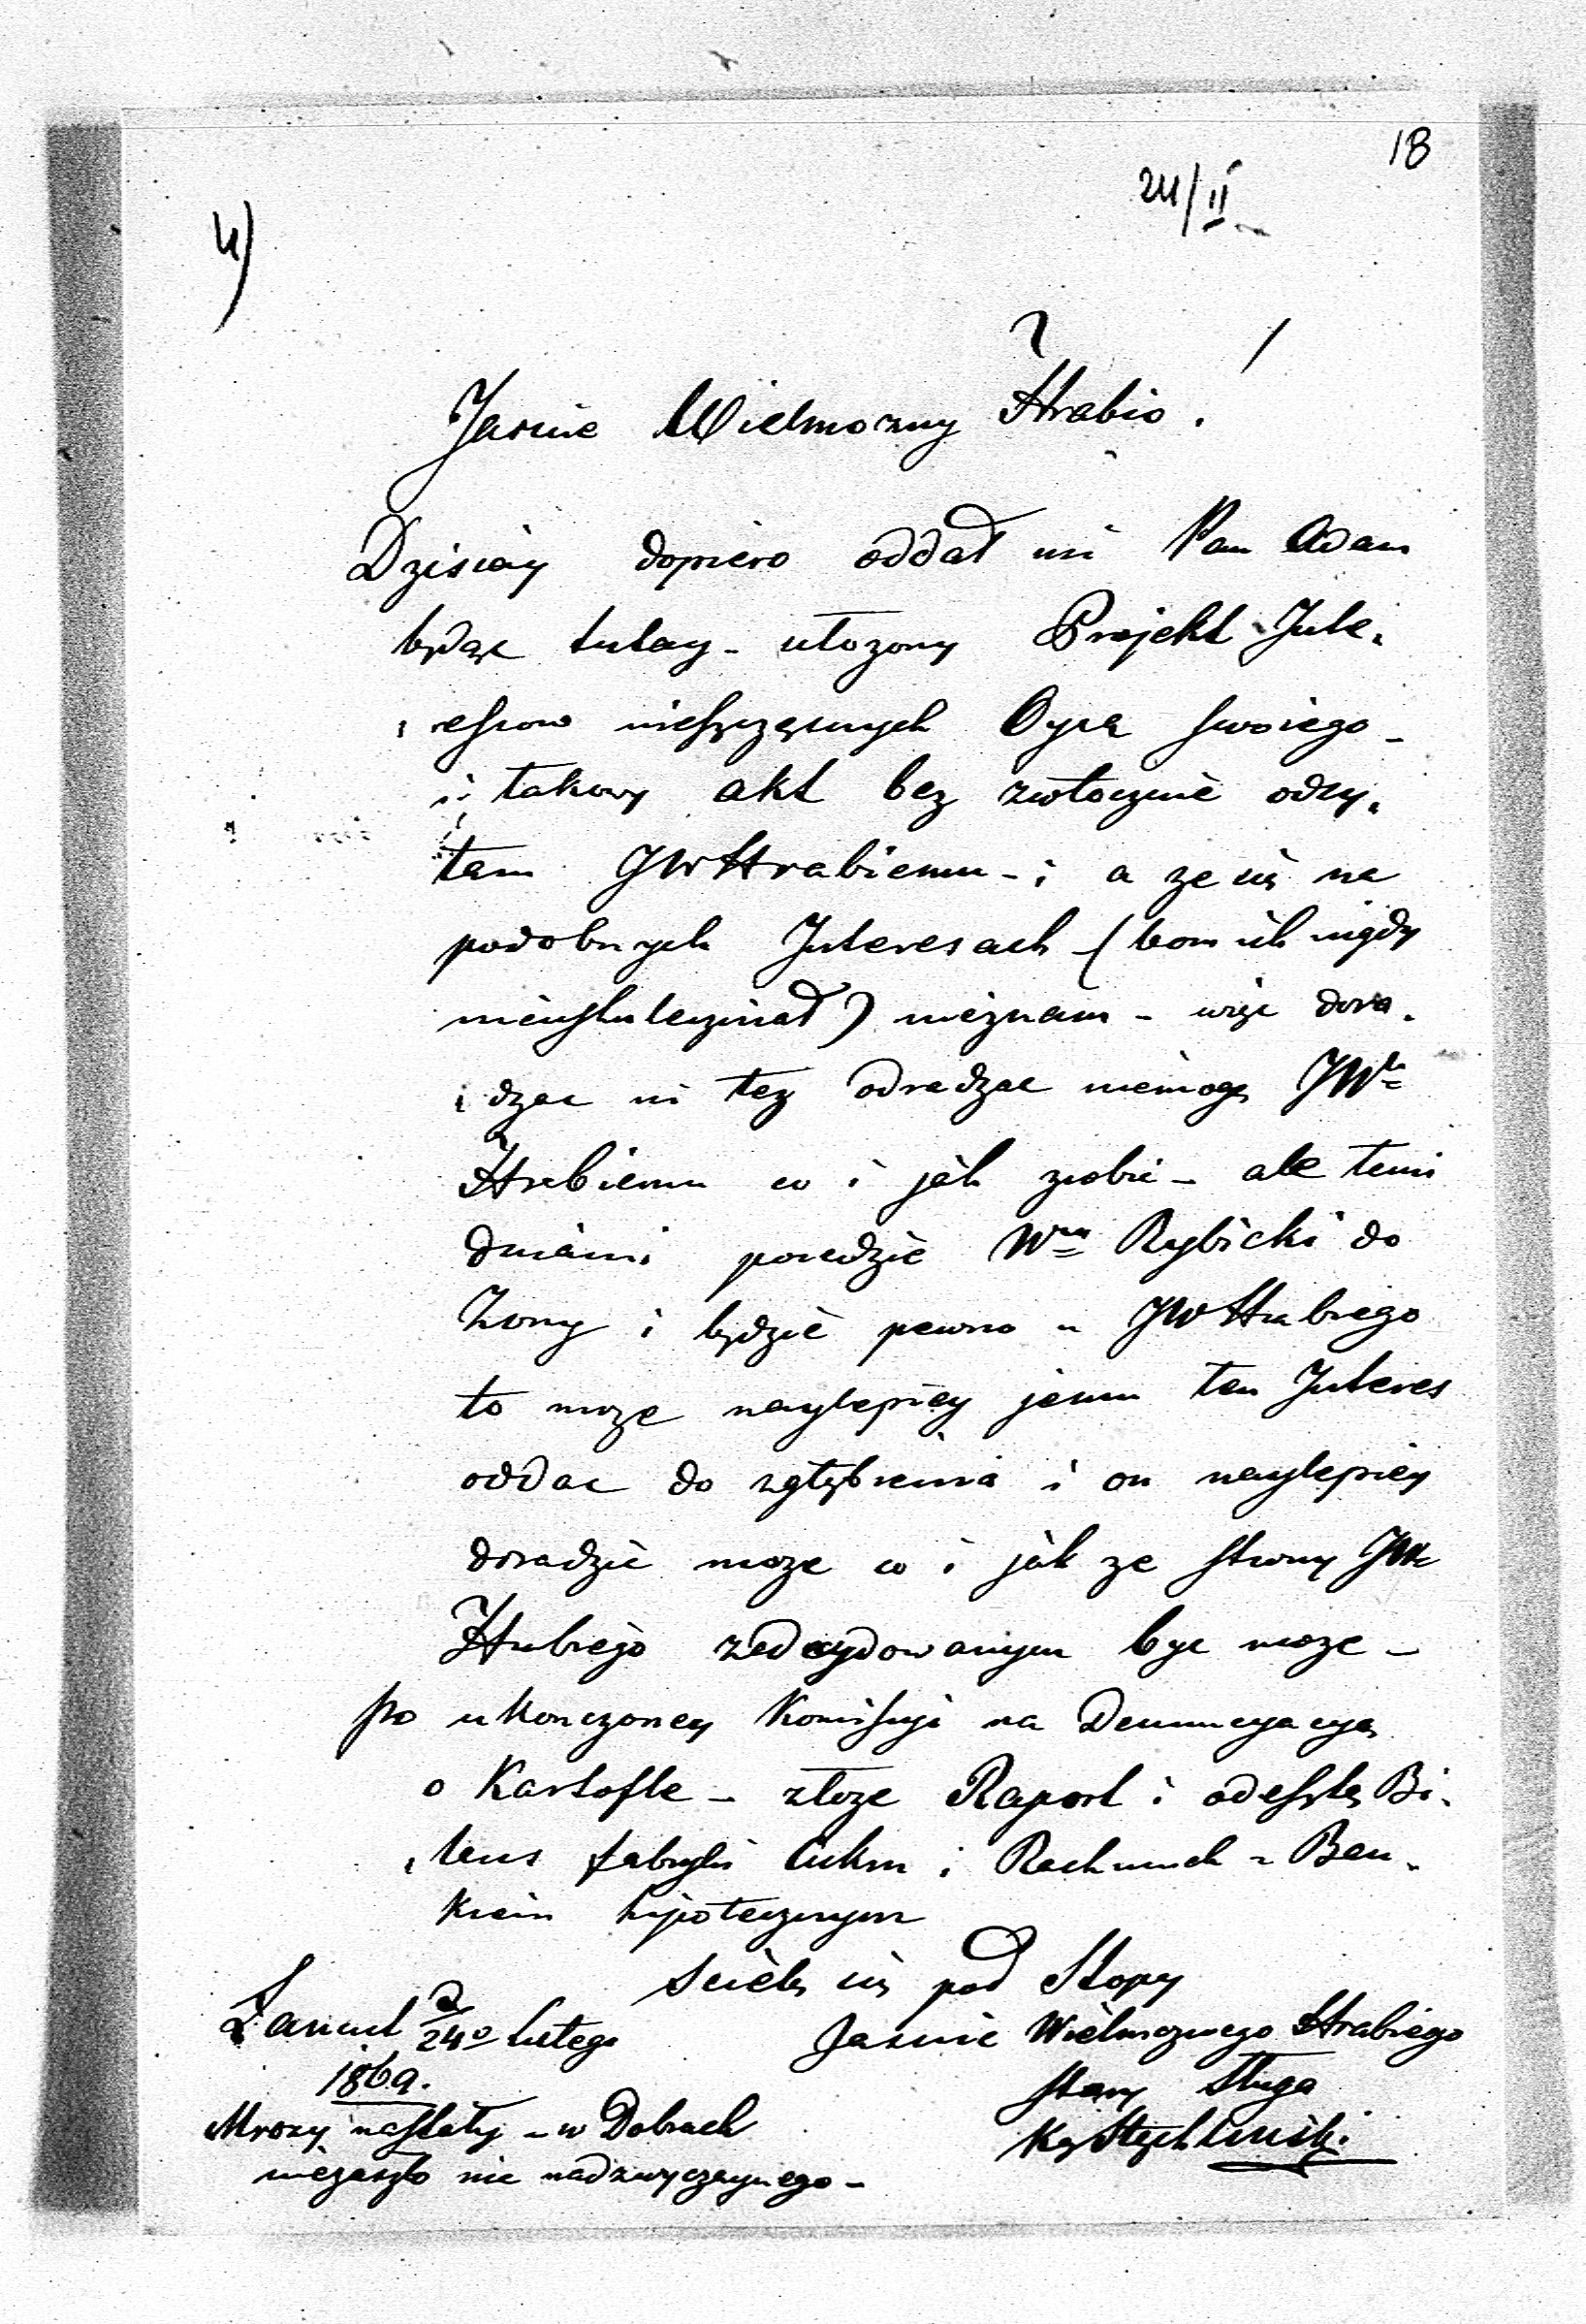 18
24/II
4)
Jasnie Wielmozny Hrabio!
Dzisiay dopiero oddał mi Pan Adam
będąc tutay - ułozony Projekt Inte-
ressow nieszczęsnych Oyca swoiego -
i takowy akt bez zwłocznie odsy-
łam JWHrabiemu - i a ze się na
podobnych Interesach - (bom ich nigdy
nieuskuteczniał) nieznam - więc dora-
dzac ni tez odradzac niemogę JWu
Hrabiemu co i jak zrobic - ale temi
dniami poiedzie Wny Rybicki do
Zony i będzie pewno u JWHrabiego
to moze naylepiey jemu ten Interes
oddac do zgłębienia i on naylepiey
doradzic moze co i jak ze strony JW
Hrabiego zadecydowanym byc moze -
po ukonczoney Komissyi na Denuncyacyą
o Kartofle - złoze Raport i odeszlę Bi-
lans fabryki Cukru i Rachunek z Ban-
kiem hipotecznym
Scielę się pod Stopy
Łancut d 24o lutego
Jasnie Wielmoznego Hrabiego
1869.
stary Sługa
Mrozy nastały - w Dobrach
niezaszło nic nadzwyczaynego -